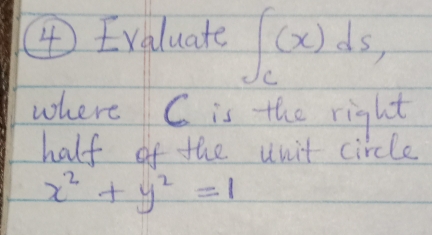 ④ Evaluate ∫_C (x) ds,
where C is the right
half of the unit circle
x² + y² = 1